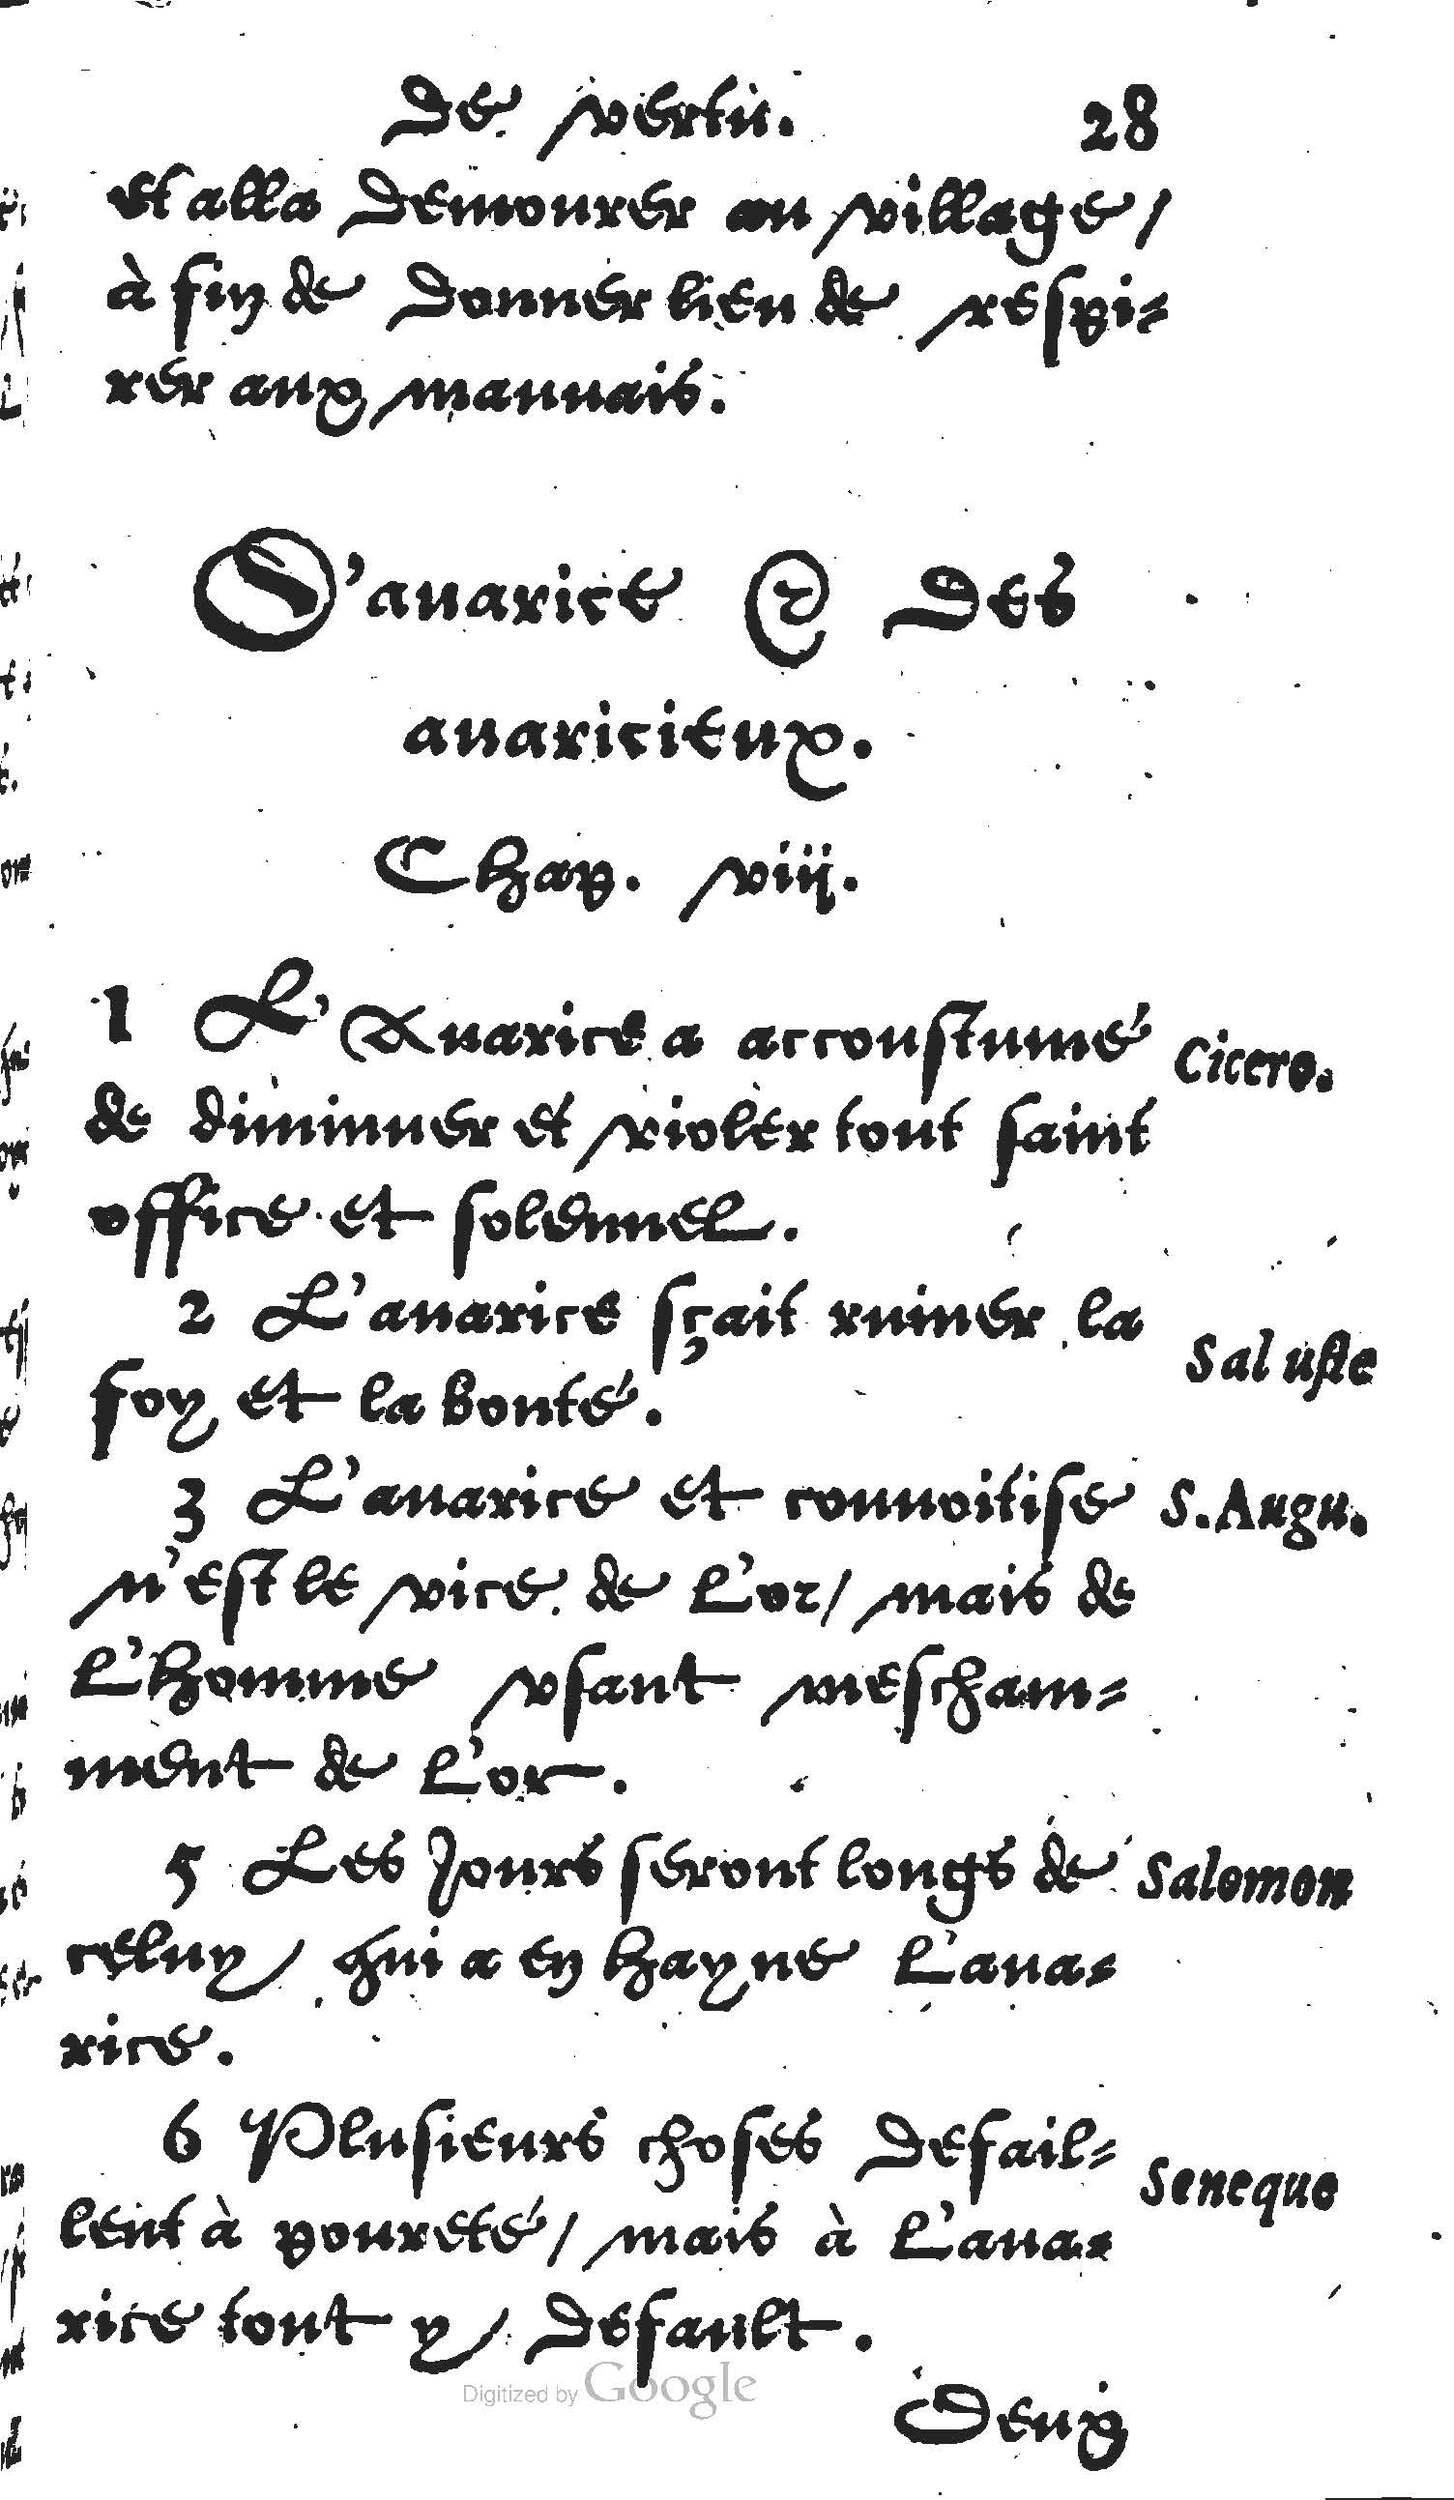 De vertu. 28
et alla demourer au village/
à fin de donner lieu de respi=
rer aux mauuais.
D'auarice & des
auaricieux.
Chap. viij.
1 L'Auarice a accoustumé Cicero.
de diminuer et violer tout saint
office et solennel.
2 L'auarice sçait ruiner la Saluste
foy et la bonté.
3 L'auarice et conuoitise S. Augu.
n'est le vice de l'or/ mais de
l'homme vsant mescham=
ment de l'or.
5 Les Jours seront longs de Salomon
celuy qui a en hayne l'aua=
rice.
6 Plusieurs choses defail= Seneque
lent à poureté/ mais à l'aua=
rice tout y default.
Digitized by Google
Deux